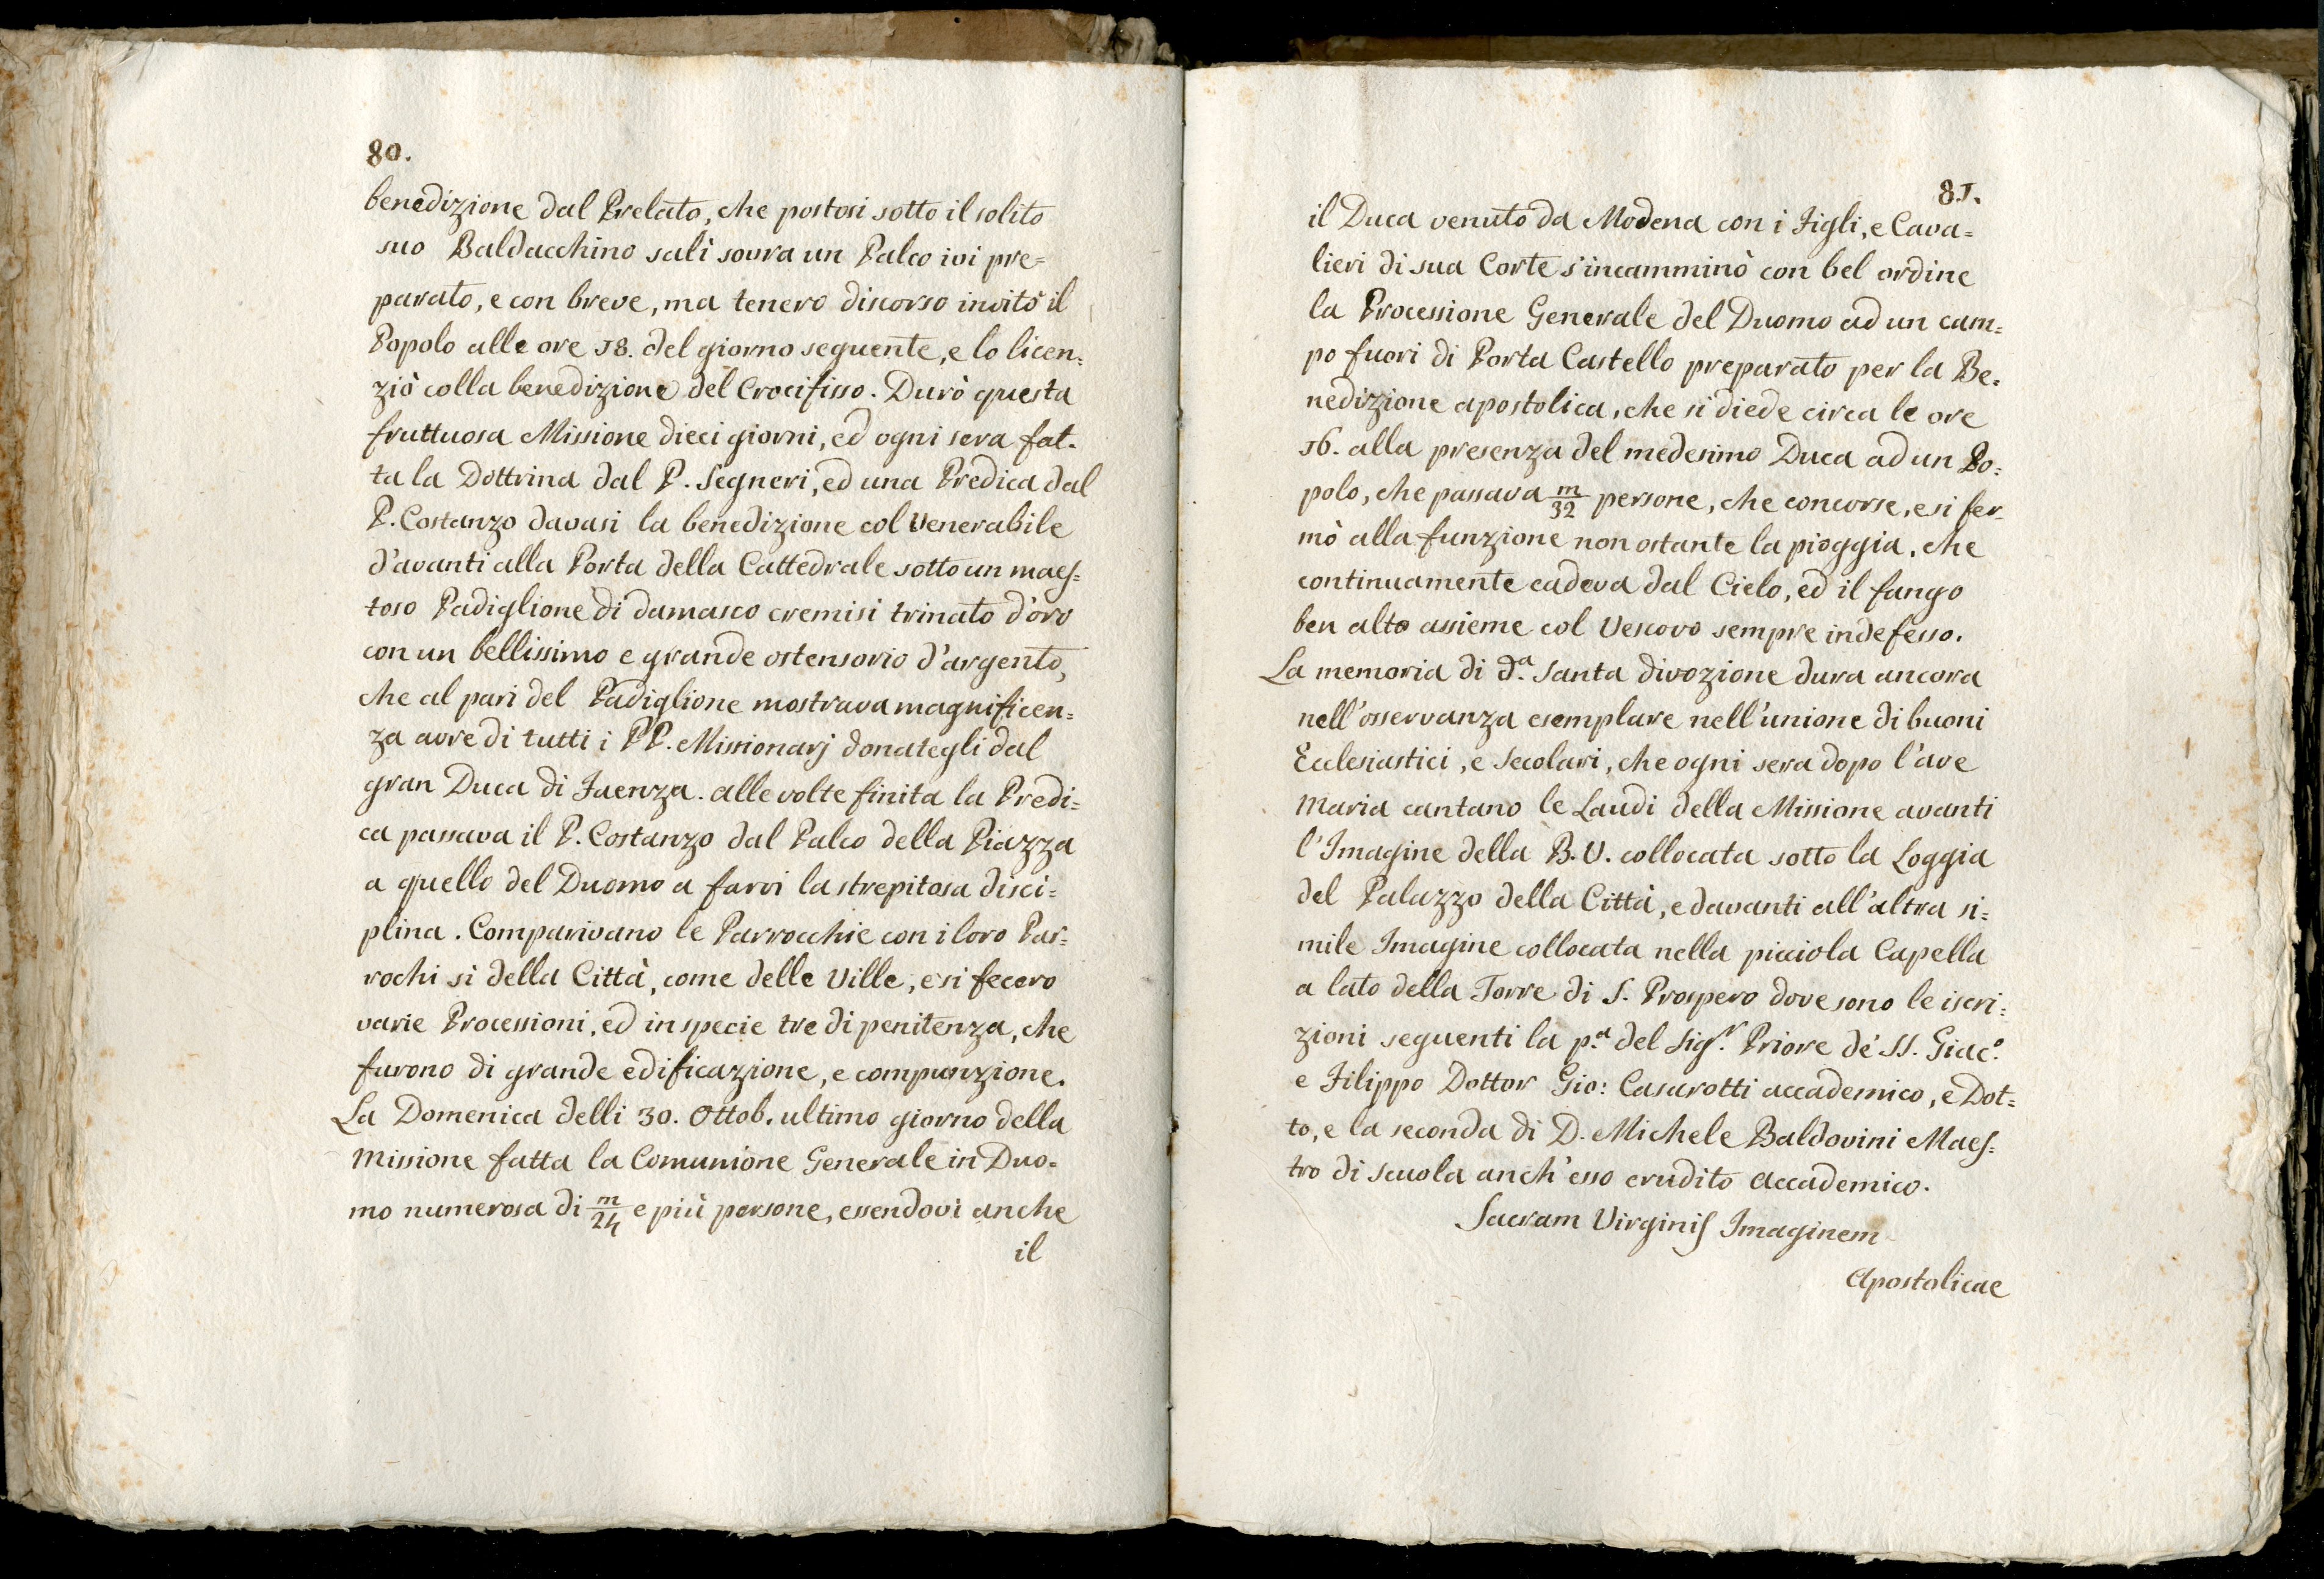 80.
benedizione dal Prelato, che postosi sotto il solito
suo Baldacchino salì sovra un Palco ivi pre=
parato, e con breve, ma tenero discorso invitò il
Popolo alle ore 18. del giorno seguente, e lo licen=
ziò colla benedizione del Crocifisso. Durò questa
fruttuosa Missione dieci giorni, ed ogni sera fat=
ta la Dottrina dal P. Segneri, ed una Predica dal
P. Costanzo davasi la benedizione col Venerabile
d'avanti alla Porta della Cattedrale sotto un maes=
toso Padiglione di damasco cremisi trinato d'oro
con un bellissimo e grande ostensorio d'argento,
che al pari del Padiglione mostrava magnificen=
za avre di tutti i PP. Missionarj donategli dal
gran Duca di Faenza. alle volte finita la Predi=
ca passava il P. Costanzo dal Palco della Piazza
a quello del Duomo a farvi la strepitosa disci=
plina. Comparivano le Parrocchie con i loro Par=
rochi sì della Città, come delle Ville, e si fecero
varie Processioni, ed in specie tre di penitenza, che
furono di grande edificazione, e compunzione.
La Domenica delli 30. Ottob. ultimo giorno della
Missione fatta la Comunione Generale in Duo=
mo numerosa di m/24 e più persone, essendovi anche
il
81.
il Duca venuto da Modena con i Figli, e Cava=
lieri di sua Corte s'incamminò con bel ordine
la Processione Generale del Duomo ad un cam=
po fuori di Porta Castello preparato per la Be=
nedizione apostolica, che si diede circa le ore
16. alla presenza del medesimo Duca ad un Po=
polo, che passava m/32 persone, che concorse, e si fer=
mò alla funzione non ostante la pioggia, che
continuamente cadeva dal Cielo, ed il fango
ben alto assieme col Vescovo sempre indefesso.
La memoria di d.a Santa divozione dura ancora
nell'osservanza esemplare nell'unione di buoni
Ecclesiastici, e Secolari, che ogni sera dopo l'ave
Maria cantano le Laudi della Missione avanti
l'Imagine della B. V. collocata sotto la Loggia
del Palazzo della Città, e davanti all'altra si=
mile Imagine collocata nella picciola Capella
a lato della Torre di S. Prospero dove sono le iscri=
zioni seguenti la p.a del Sig.r Priore de' SS. Giac.o
e Filippo Dottor Gio: Casarotti accademico, e Dot=
to, e la seconda di D. Michele Baldovini Maes=
tro di scuola anch'esso erudito accademico.
Sacram Virginis Imaginem
Apostolicae